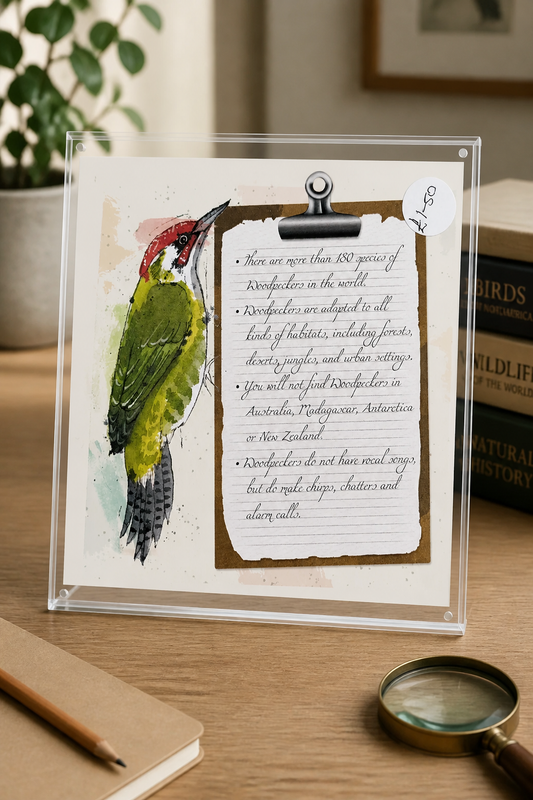 £1-50
• There are more than 180 species of
Woodpeckers in the world.
• Woodpeckers are adapted to all
kinds of habitats, including forests,
deserts, jungles, and urban settings.
• You will not find Woodpeckers in
Australia, Madagascar, Antarctica
or New Zealand.
• Woodpeckers do not have vocal songs,
but do make chirps, chatters and
alarm calls.
BIRDS
WILDLIFE
OF THE WORLD
NATURAL
HISTORY